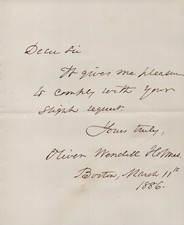 Dear Sir
It gives me pleasure
to comply with your
slight request.
Yours truly,
Oliver Wendell Holmes.
Boston, March 11th
1886.